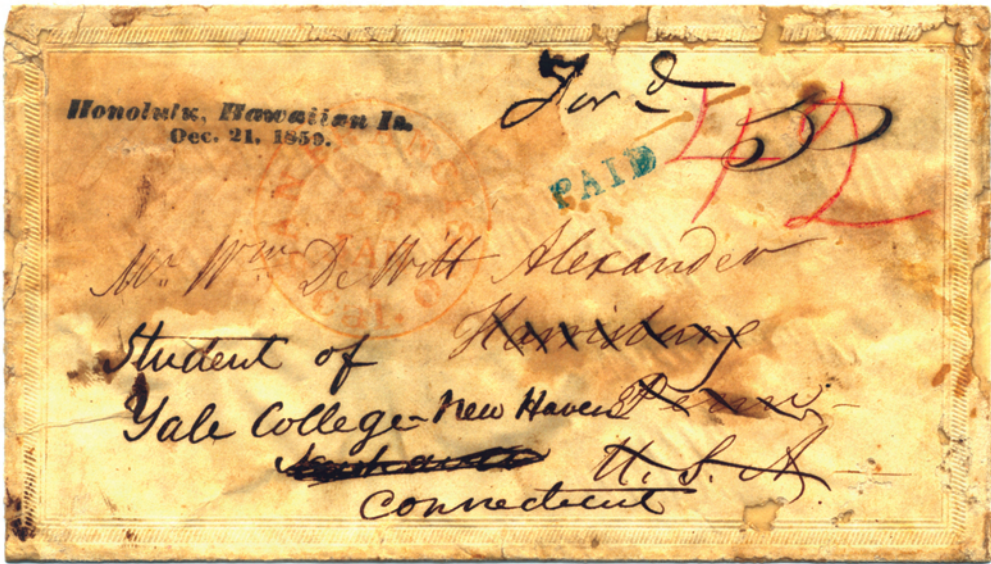 Honolulu, Hawaiian Is.
Dec. 21, 1850.
For d.
PAID
42
SAN FRANCISCO
JAN
CAL.
Mr. Wm De Witt Alexander
Harrisburg
Student of
Yale College - New Haven Penn -
U. S. A
Connecticut